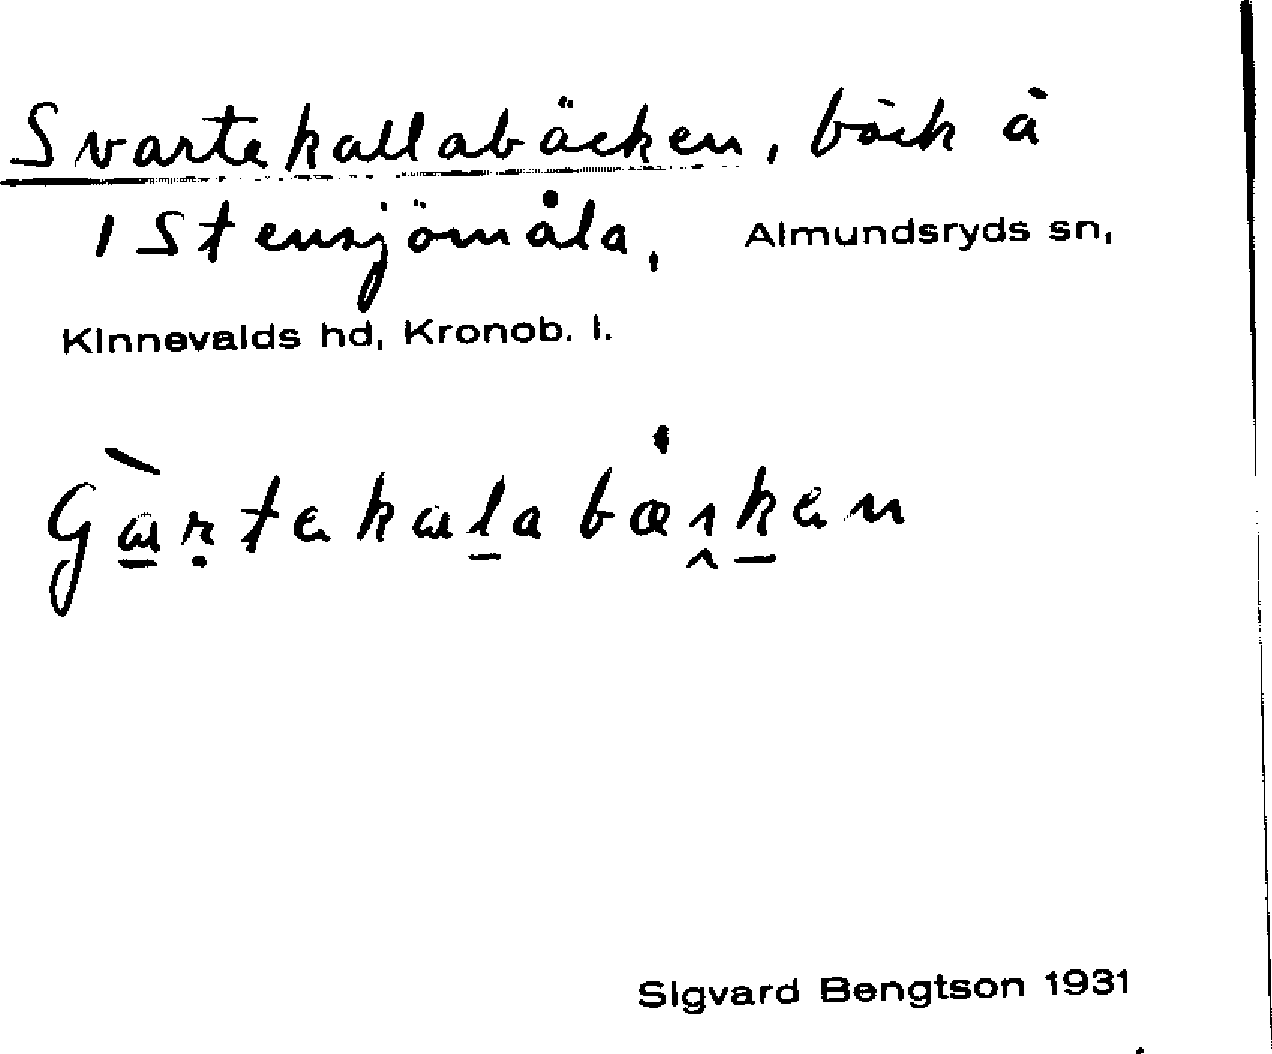 Svartekallabäcken, bäck å
1 Stensjömåla, Almundsryds sn,
Kinnevalds hd, Kronob. l.
Sigvard Bengtson 1931